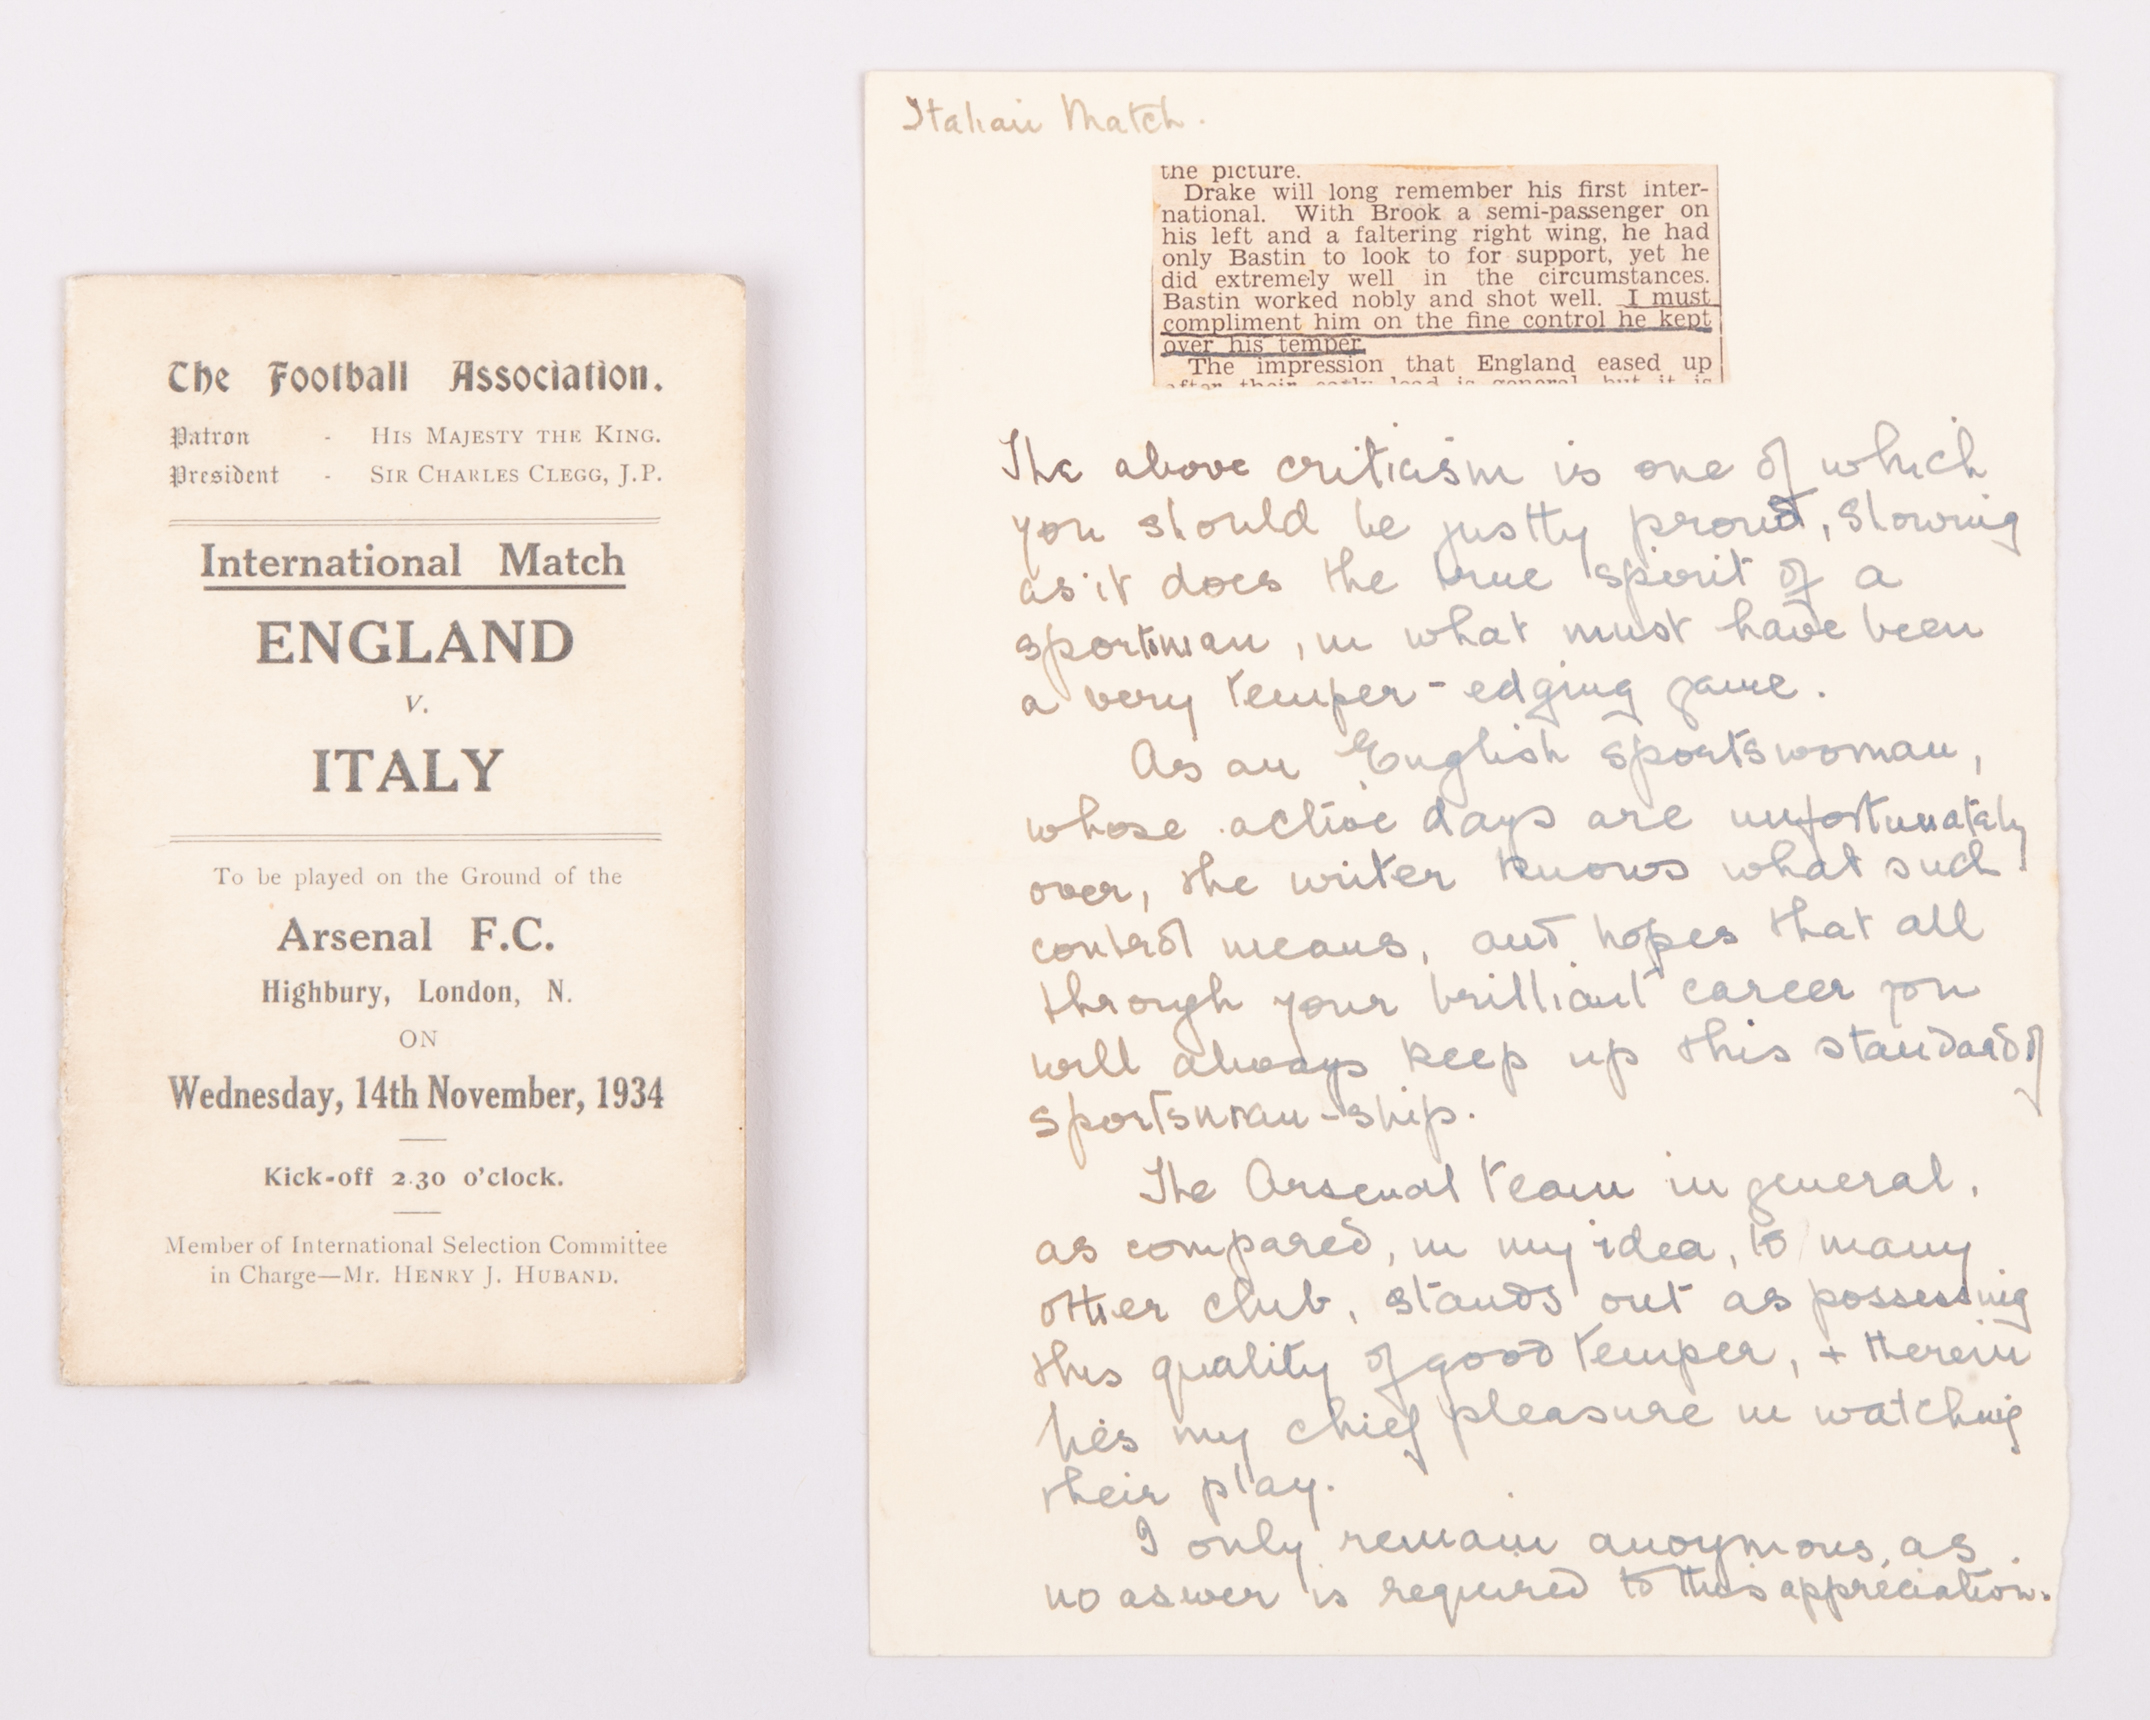 The Football Association.
Patron - HIS MAJESTY THE KING.
President - SIR CHARLES CLEGG, J.P.
International Match
ENGLAND
v.
ITALY
To be played on the Ground of the
Arsenal F.C.
Highbury, London, N.
ON
Wednesday, 14th November, 1934
Kick-off 2.30 o'clock.
Member of International Selection Committee
in Charge—Mr. HENRY J. HUBAND.
Italian Match.
the picture.
Drake will long remember his first inter-
national. With Brook a semi-passenger on
his left and a faltering right wing, he had
only Bastin to look to for support, yet he
did extremely well in the circumstances.
Bastin worked nobly and shot well. I must
compliment him on the fine control he kept
over his temper.
The impression that England eased up
after their early lead is general, but it is
The above criticism is one of which
you should be justly proud, showing
as it does the true spirit of a
sportsman, in what must have been
a very temper-edging game.
As an English sportswoman,
whose active days are unfortunately
over, the writer knows what such
control means, and hopes that all
through your brilliant career you
will always keep up this standard of
sportsman-ship.
The Arsenal team in general,
as compared, in my idea, to many
other club, stands out as possessing
this quality of good temper, + therein
lies my chief pleasure in watching
their play.
I only remain anoymous, as
no aswer is required to this appreciation.